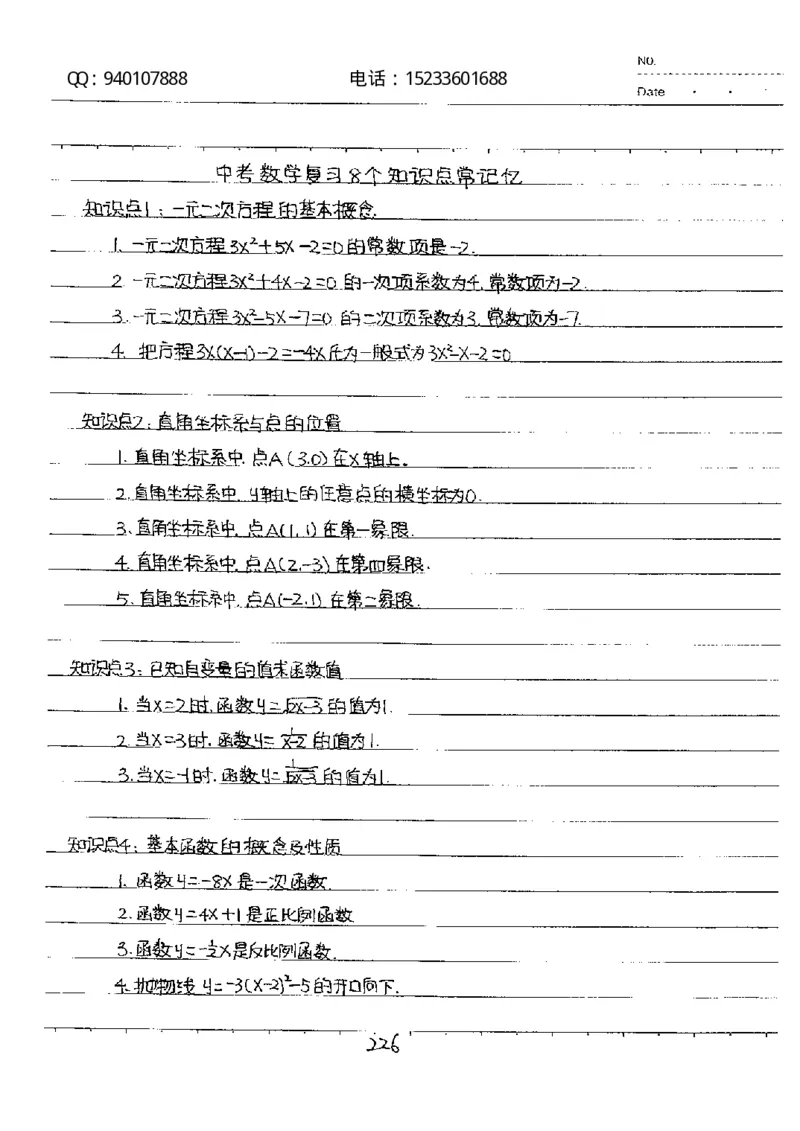 QQ：940107888 电话：15233601688 NO.
Date
中考数学复习8个知识点常记忆
知识点1：一元二次方程的基本概念.
1. 一元二次方程3x²+5x-2=0的常数项是-2.
2. 一元二次方程3x²+4x-2=0的一次项系数为4,常数项为-2.
3. 一元二次方程3x²-5x-7=0的二次项系数为3,常数项为-7.
4. 把方程3x(x-1)-2=-4x化为一般式为3x²-x-2=0
知识点2：直角坐标系与点的位置
1. 直角坐标系中,点A(3.0)在x轴上.
2. 直角坐标系中,y轴上的任意点的横坐标为0.
3、直角坐标系中,点A(1,1)在第一象限.
4、直角坐标系中,点A(2,-3)在第四象限.
5、直角坐标系中,点A(-2,1)在第二象限.
知识点3：已知自变量的值求函数值
1. 当x=2时,函数y=的值为1.
2. 当x=3时,函数y=1/(x-2)的值为1.
3. 当x=-1时,函数y=的值为1.
知识点4：基本函数的概念及性质
1. 函数y=-8x是一次函数.
2. 函数y=4x+1是正比例函数
3. 函数y=-1/2x是反比例函数.
4. 抛物线y=-3(x-2)²-5的开口向下.
226